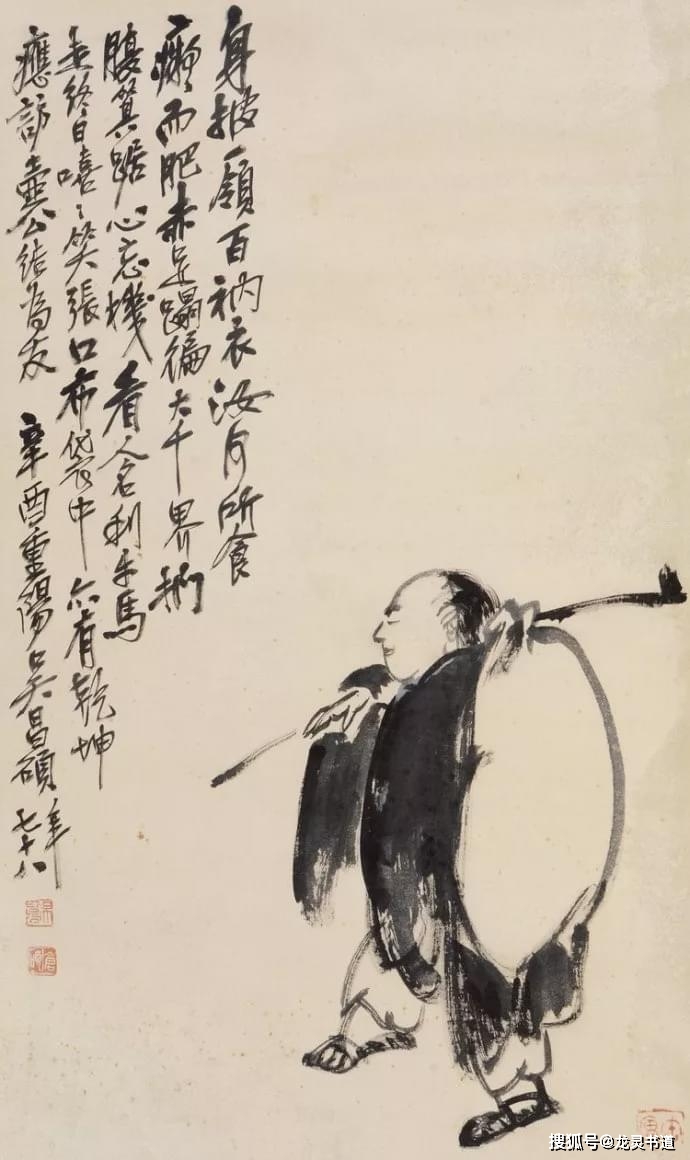 身披一領百衲衣汝何所食
癡而肥赤足蹋徧大千界捫
腹箕踞心忘機看人名利牛馬
走終日嘻〻笑張口布袋中亦有乾坤
應訪壺公結為友 辛酉重陽吳昌碩年七十八
搜狐号@龙灵书道